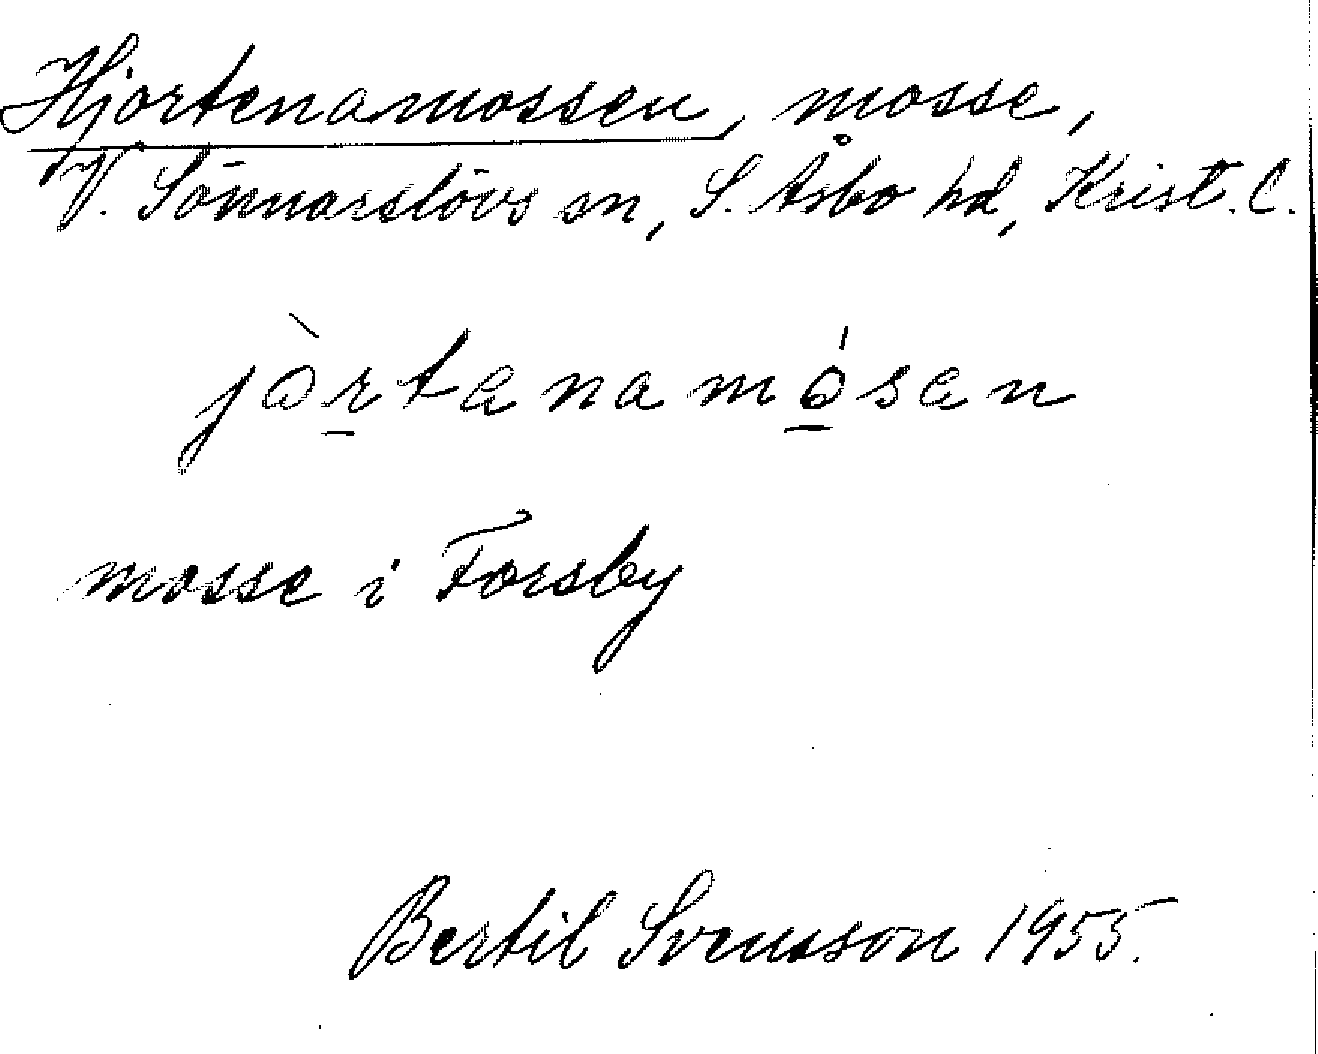 Hjortenamossen, mosse,
V. Sönnarslövs sn, S. Åsbo hd, Krist. l.
jòrtenamósen
mosse i Forsby
Bertil Svensson 1955.